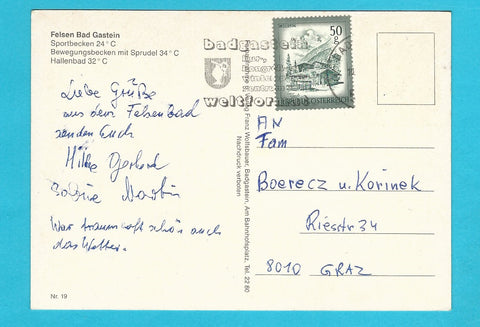 Felsen Bad Gastein
Sportbecken 24° C
Bewegungsbecken mit Sprudel 34° C
Hallenbad 32° C
badgastein
weltform
50 g
REPUBLIK ÖSTERREICH
Liebe Grüße
aus dem Felsenbad
senden Euch
Hilde Gerhard
Sabine Martin
War traumhaft schön auch
das Wetter.
Nr. 19
Franz Wolfsbauer, Badgastein, Am Bahnhofsplatz, Tel. 22 60
Nachdruck verboten
AN
Fam
Boerecz u. Korinek
Riesstr 34
8010 GRAZ